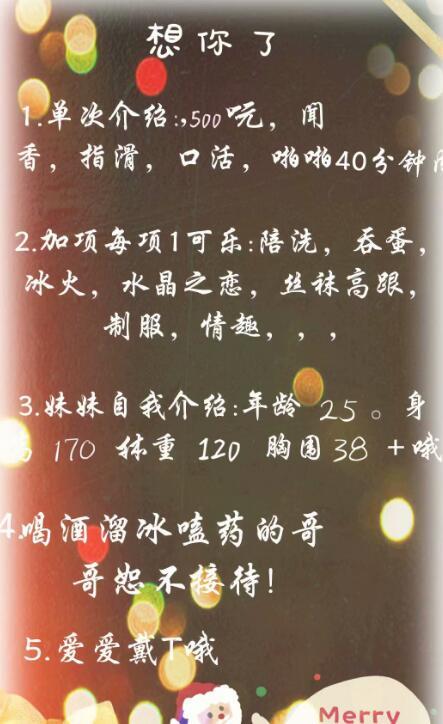 想你了
1.单次介绍:,500呒，闻
香，指滑，口活，啪啪40分钟
2.加项每项1可乐:陪洗，吞蛋，
冰火，水晶之恋，丝袜高跟，
制服，情趣，，，
3.妹妹自我介绍:年龄 25。身
高 170 体重 120 胸围38+哦
4.喝酒溜冰嗑药的哥
哥恕不接待!
5.爱爱戴T哦
Merry